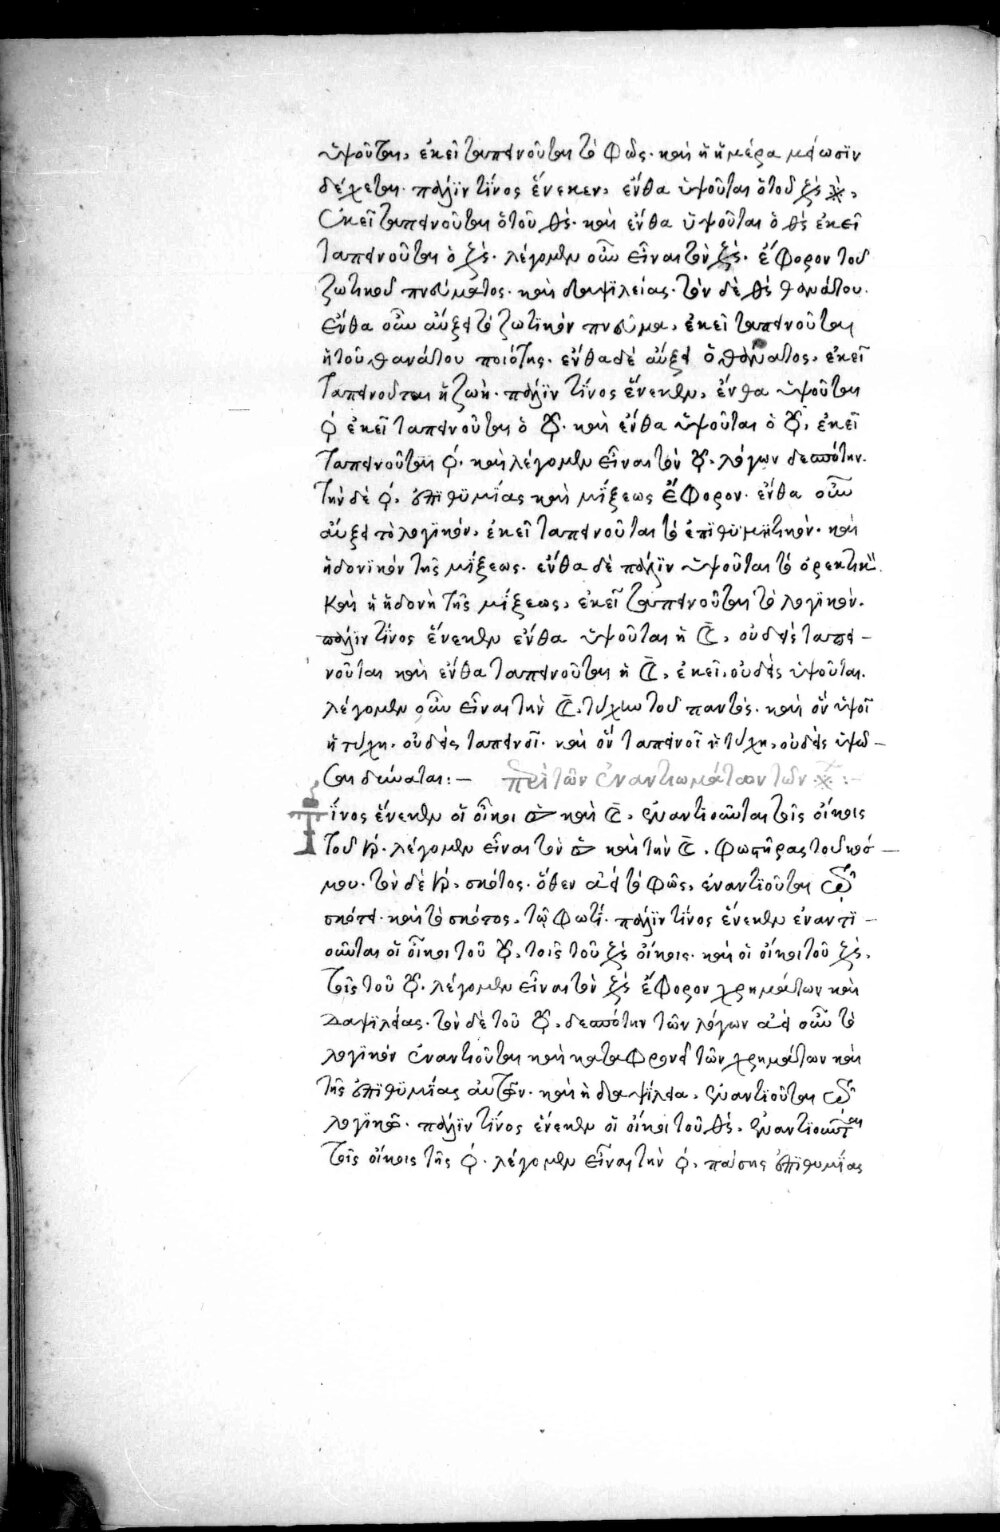 ὑψοῦται, ἐκεῖ ταπεινοῦται τὸ φῶς· καὶ ἡ ἡμέρα μείωσϊν
δέχεται· πάλϊν τίνος ἕνεκεν, ἔνθα ὑψοῦται ὁ τοῦ
ἐκεῖ ταπεινοῦται ὁ τοῦ ♂· καὶ ἔνθα ὑψοῦται ὁ ♂ ἐκεῖ
ταπεινοῦται ὁ ♃· λέγομεν οὖν εἶναι τὸν ♃· ἔφορον τοῦ
ζωτικοῦ πνεύματος· καὶ δαψιλείας· τὸν δὲ ♂ θανάτου·
ἔνθα οὖν αὔξει τὸ ζωτικὸν πνεῦμα, ἐκεῖ ταπεινοῦται
ἡ τοῦ θανάτου ποιότης· ἔνθα δὲ αὔξει ὁ θάνατος, ἐκεῖ
ταπεινοῦται ἡ ζωή· πάλϊν τίνος ἕνεκεν, ἔνθα ὑψοῦται
♀ ἐκεῖ ταπεινοῦται ὁ ☿· καὶ ἔνθα ὑψοῦται ὁ ☿, ἐκεῖ
ταπεινοῦται ♀· καὶ λέγομεν εἶναι τὸν ☿· λόγων δεσπότην·
τὴν δὲ ♀· ἐπϊθυμίας καὶ μίξεως ἔφορον· ἔνθα οὖν
αὔξει τὸ λογϊκόν, ἐκεῖ ταπεινοῦται τὸ ἐπϊθυμητικόν· καὶ
ἡδονϊκὸν τῆς μίξεως· ἔνθα δὲ πάλϊν ὑψοῦται τὸ ὀρεκτικὸν
καὶ ἡ ἡδονὴ τῆς μίξεως, ἐκεῖ ταπεινοῦται τὸ λογϊκόν·
πάλϊν τίνος ἕνεκεν ἔνθα ὑψοῦται ἡ ☾, οὐδεὶς ταπει-
νοῦται καὶ ἔνθα ταπεινοῦται ἡ ☾, ἐκεῖ, οὐδεὶς ὑψοῦται·
λέγομεν οὖν εἶναι τὴν ☾, τύχην τοῦ παντός· καὶ ὃν ὑψοῖ
ἡ τύχη, οὐδεὶς ταπεινοῖ· καὶ ὃν ταπεινοῖ ἡ τύχη, οὐδεὶς ὑψῶ-
σαι δύναται:— περὶ τῶν ἐναντιωμάτων τῶν
Τίνος ἕνεκεν οἱ οἶκοι ☉ καὶ ☾, ἐναντιοῦνται τοῖς οἴκοις
τοῦ ♄· λέγομεν εἶναι τὸν ☉ καὶ τὴν ☾, φωστῆρας τοῦ κόσ-
μου· τὸν δὲ ♄, σκότος· ὅθεν ἀεὶ τὸ φῶς, ἐναντϊοῦται τῷ
σκότει· καὶ τὸ σκότος, τῷ φωτί· πάλϊν τίνος ἕνεκεν ἐναντϊ-
οῦνται οἱ οἶκοι τοῦ ☿, τοῖς τοῦ ♃ οἴκοις· καὶ οἱ οἶκοι τοῦ ♃,
τοῖς τοῦ ☿· λέγομεν εἶναι τὸν ♃ ἔφορον χρημάτων καὶ
δαψϊλείας· τὸν δὲ τοῦ ☿, δεσπότην τῶν λόγων ἀεὶ οὖν τὸ
λογϊκὸν ἐναντιοῦται καὶ καταφρονεῖ τῶν χρημάτων καὶ
τῆς ἐπϊθϋμίας αὐτῶν· καὶ ἡ δαψίλεια, ἐναντϊοῦται τῷ
λογϊκῷ· πάλϊν τίνος ἕνεκεν οἱ οἶκοι τοῦ ♂, ἐναντιοῦνται
τοῖς οἴκοις τῆς ♀· λέγομεν εἶναι τὴν ♀, πάσης ἐπϊθυμίας